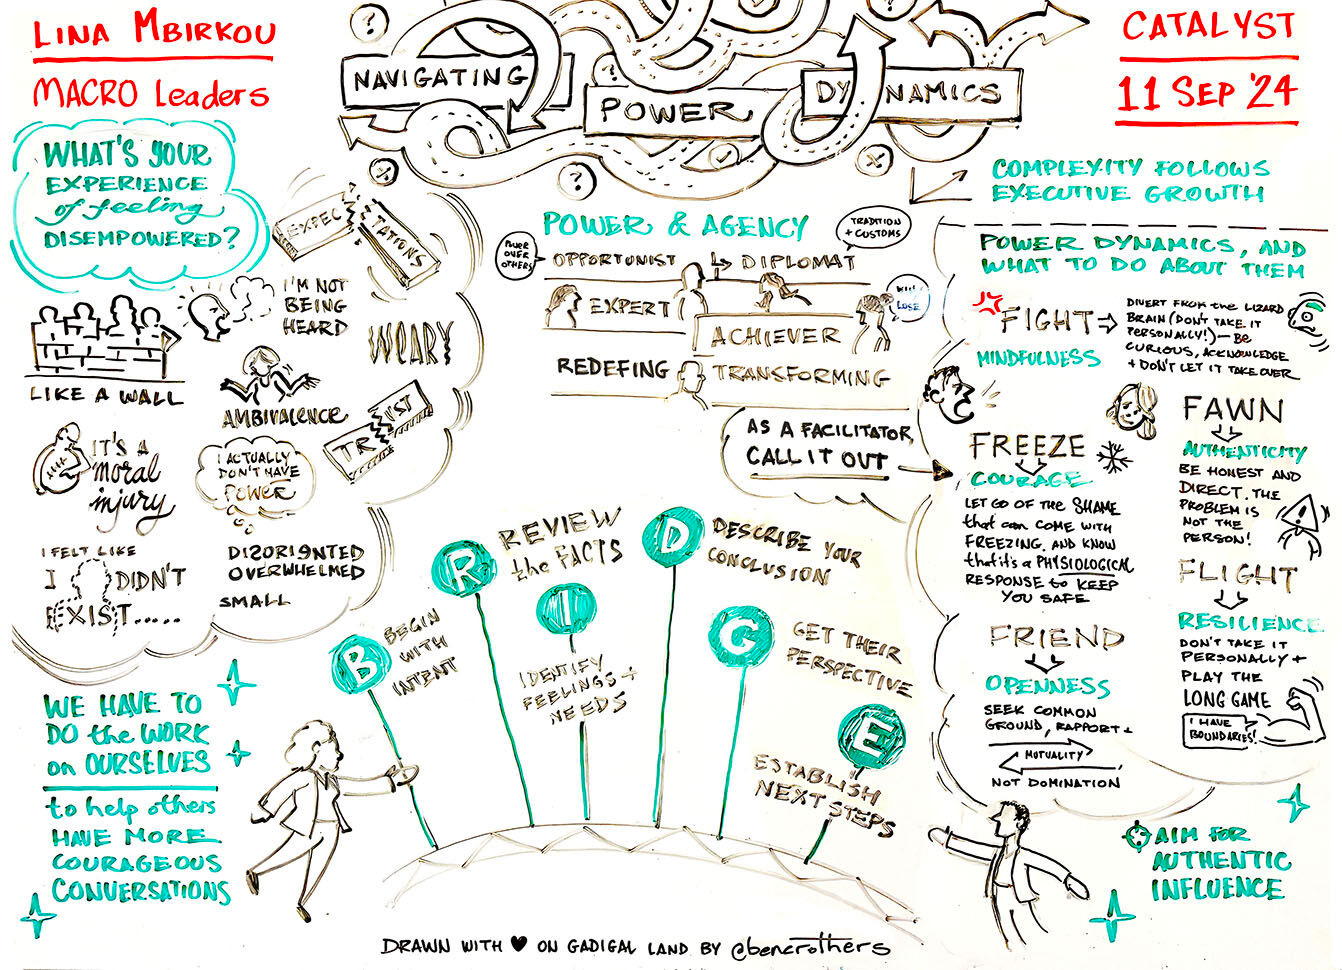 LINA MBIRKOU
MACRO Leaders
NAVIGATING
POWER
DYNAMICS
CATALYST
11 SEP '24
WHAT'S YOUR
EXPERIENCE
of feeling
DISEMPOWERED?
EXPEC
TATIONS
I'M NOT
BEING
HEARD
LIKE A WALL
AMBIVALENCE
WEARY
TRUST
IT'S A
moral
injury
I ACTUALLY
DON'T HAVE
POWER
I FELT LIKE
I DIDN'T
EXIST.....
DISORIENTED
OVERWHELMED
SMALL
WE HAVE TO
DO the WORK
on OURSELVES
to help others
HAVE MORE
COURAGEOUS
CONVERSATIONS
POWER & AGENCY
POWER
OVER
OTHERS
OPPORTUNIST
DIPLOMAT
TRADITION
+ CUSTOMS
EXPERT
ACHIEVER
WIN
LOSE
REDEFING
TRANSFORMING
AS A FACILITATOR,
CALL IT OUT
B
BEGIN
WITH
INTENT
R
REVIEW
the FACTS
I
IDENTIFY
FEELINGS +
NEEDS
D
DESCRIBE YOUR
CONCLUSION
G
GET THEIR
PERSPECTIVE
E
ESTABLISH
NEXT STEPS
COMPLEXITY FOLLOWS
EXECUTIVE GROWTH
POWER DYNAMICS, AND
WHAT TO DO ABOUT THEM
FIGHT
MINDFULNESS
DIVERT FROM the LIZARD
BRAIN (DON'T TAKE IT
PERSONALLY!) — Be
CURIOUS, ACKNOWLEDGE
+ DON'T LET IT TAKE OVER
FREEZE
COURAGE
LET GO OF THE SHAME
that can COME WITH
FREEZING, AND KNOW
that it's a PHYSIOLOGICAL
RESPONSE to KEEP
YOU SAFE
FAWN
AUTHENTICITY
BE HONEST AND
DIRECT. THE
PROBLEM IS
NOT THE
PERSON!
FLIGHT
RESILIENCE
DON'T TAKE IT
PERSONALLY +
PLAY THE
LONG GAME
I HAVE
BOUNDARIES!
FRIEND
OPENNESS
SEEK COMMON
GROUND, RAPPORT +
MUTUALITY
NOT DOMINATION
AIM FOR
AUTHENTIC
INFLUENCE
DRAWN WITH ♥ ON GADIGAL LAND BY @bencrothers